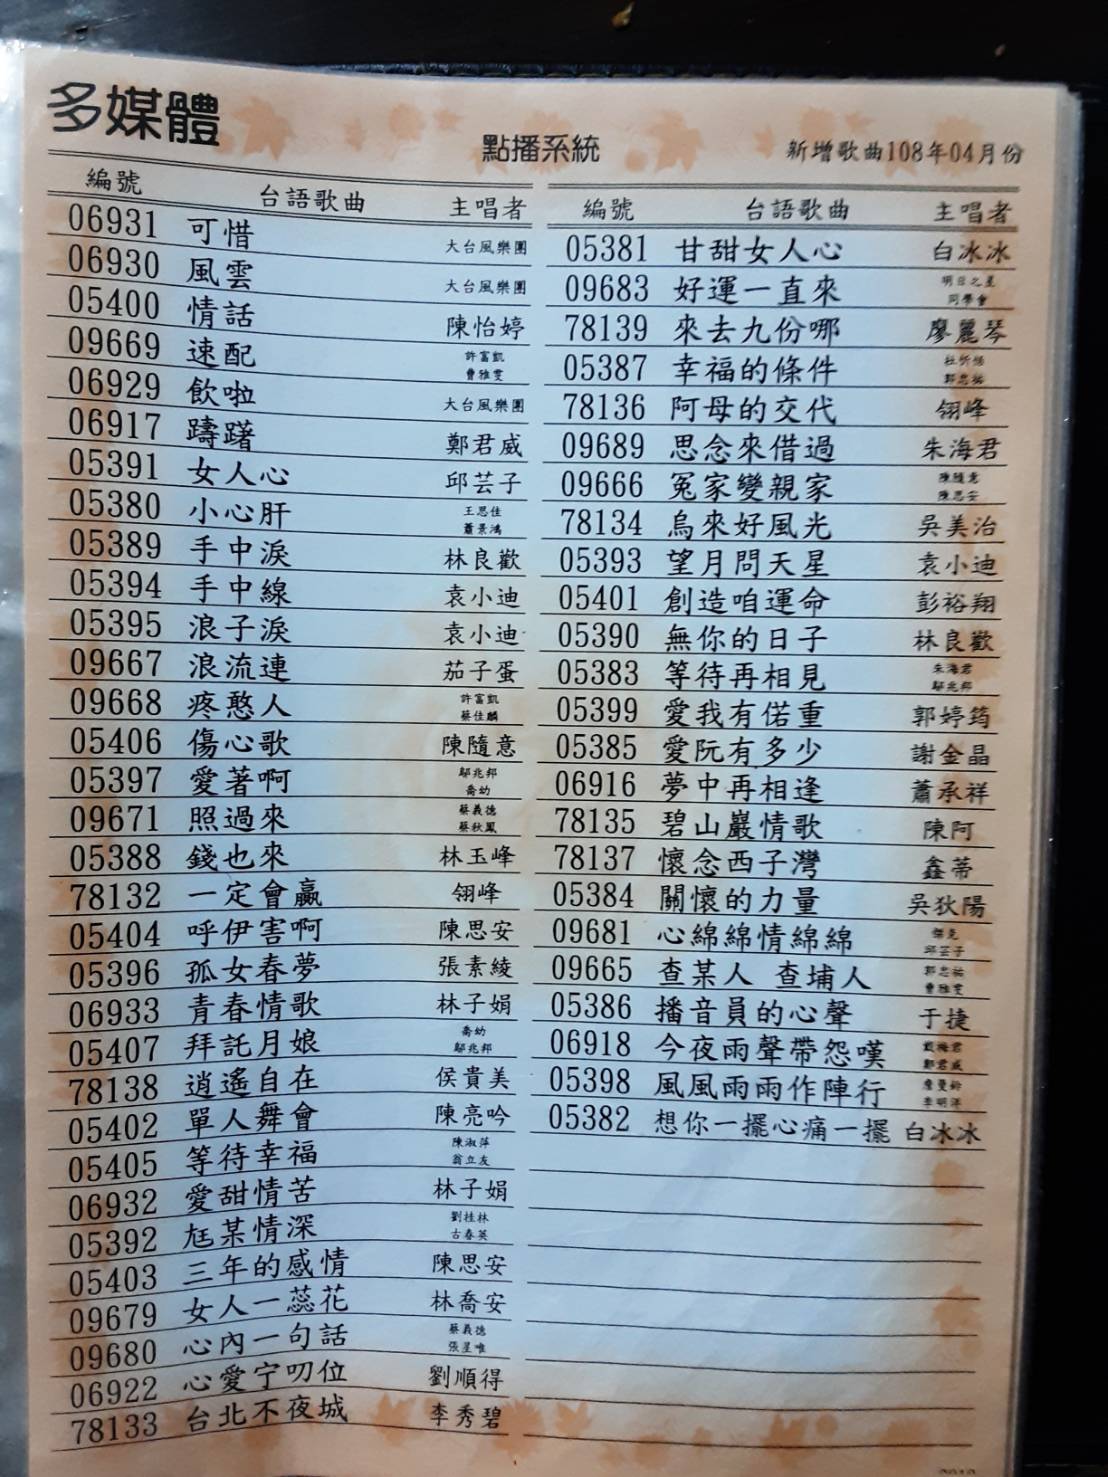 多媒體
點播系統
新增歌曲108年04月份
編號 台語歌曲 主唱者
06931 可惜 大台風樂團
06930 風雲 大台風樂團
05400 情話 陳怡婷
09669 速配 許富凱 曹雅雯
06929 飲啦 大台風樂團
06917 躊躇 鄭君威
05391 女人心 邱芸子
05380 小心肝 王思佳 蕭景鴻
05389 手中淚 林良歡
05394 手中線 袁小迪
05395 浪子淚 袁小迪
09667 浪流連 茄子蛋
09668 疼憨人 許富凱 蔡佳麟
05406 傷心歌 陳隨意
05397 愛著啊 鄔兆邦 喬幼
09671 照過來 蔡義德 蔡秋鳳
05388 錢也來 林玉峰
78132 一定會贏 翎峰
05404 呼伊害啊 陳思安
05396 孤女春夢 張素綾
06933 青春情歌 林子娟
05407 拜託月娘 喬幼 鄔兆邦
78138 逍遙自在 侯貴美
05402 單人舞會 陳亮吟
05405 等待幸福 陳淑萍 翁立友
06932 愛甜情苦 林子娟
05392 尪某情深 劉桂林 古春英
05403 三年的感情 陳思安
09679 女人一蕊花 林喬安
09680 心內一句話 蔡義德 張星唯
06922 心愛宁叨位 劉順得
78133 台北不夜城 李秀碧
編號 台語歌曲 主唱者
05381 甘甜女人心 白冰冰
09683 好運一直來 明日之星 同學會
78139 來去九份哪 廖麗琴
05387 幸福的條件 杜忻恬 郭忠祐
78136 阿母的交代 翎峰
09689 思念來借過 朱海君
09666 冤家變親家 陳隨意 陳思安
78134 烏來好風光 吳美治
05393 望月問天星 袁小迪
05401 創造咱運命 彭裕翔
05390 無你的日子 林良歡
05383 等待再相見 朱海君 鄔兆邦
05399 愛我有偌重 郭婷筠
05385 愛阮有多少 謝金晶
06916 夢中再相逢 蕭承祥
78135 碧山巖情歌 陳阿
78137 懷念西子灣 鑫蒂
05384 關懷的力量 吳狄陽
09681 心綿綿情綿綿 傑克 邱芸子
09665 查某人 查埔人 郭忠祐 曹雅雯
05386 播音員的心聲 于捷
06918 今夜雨聲帶怨嘆 戴梅君 鄭君威
05398 風風雨雨作陣行 詹曼鈴 李明洋
05382 想你一擺心痛一擺 白冰冰